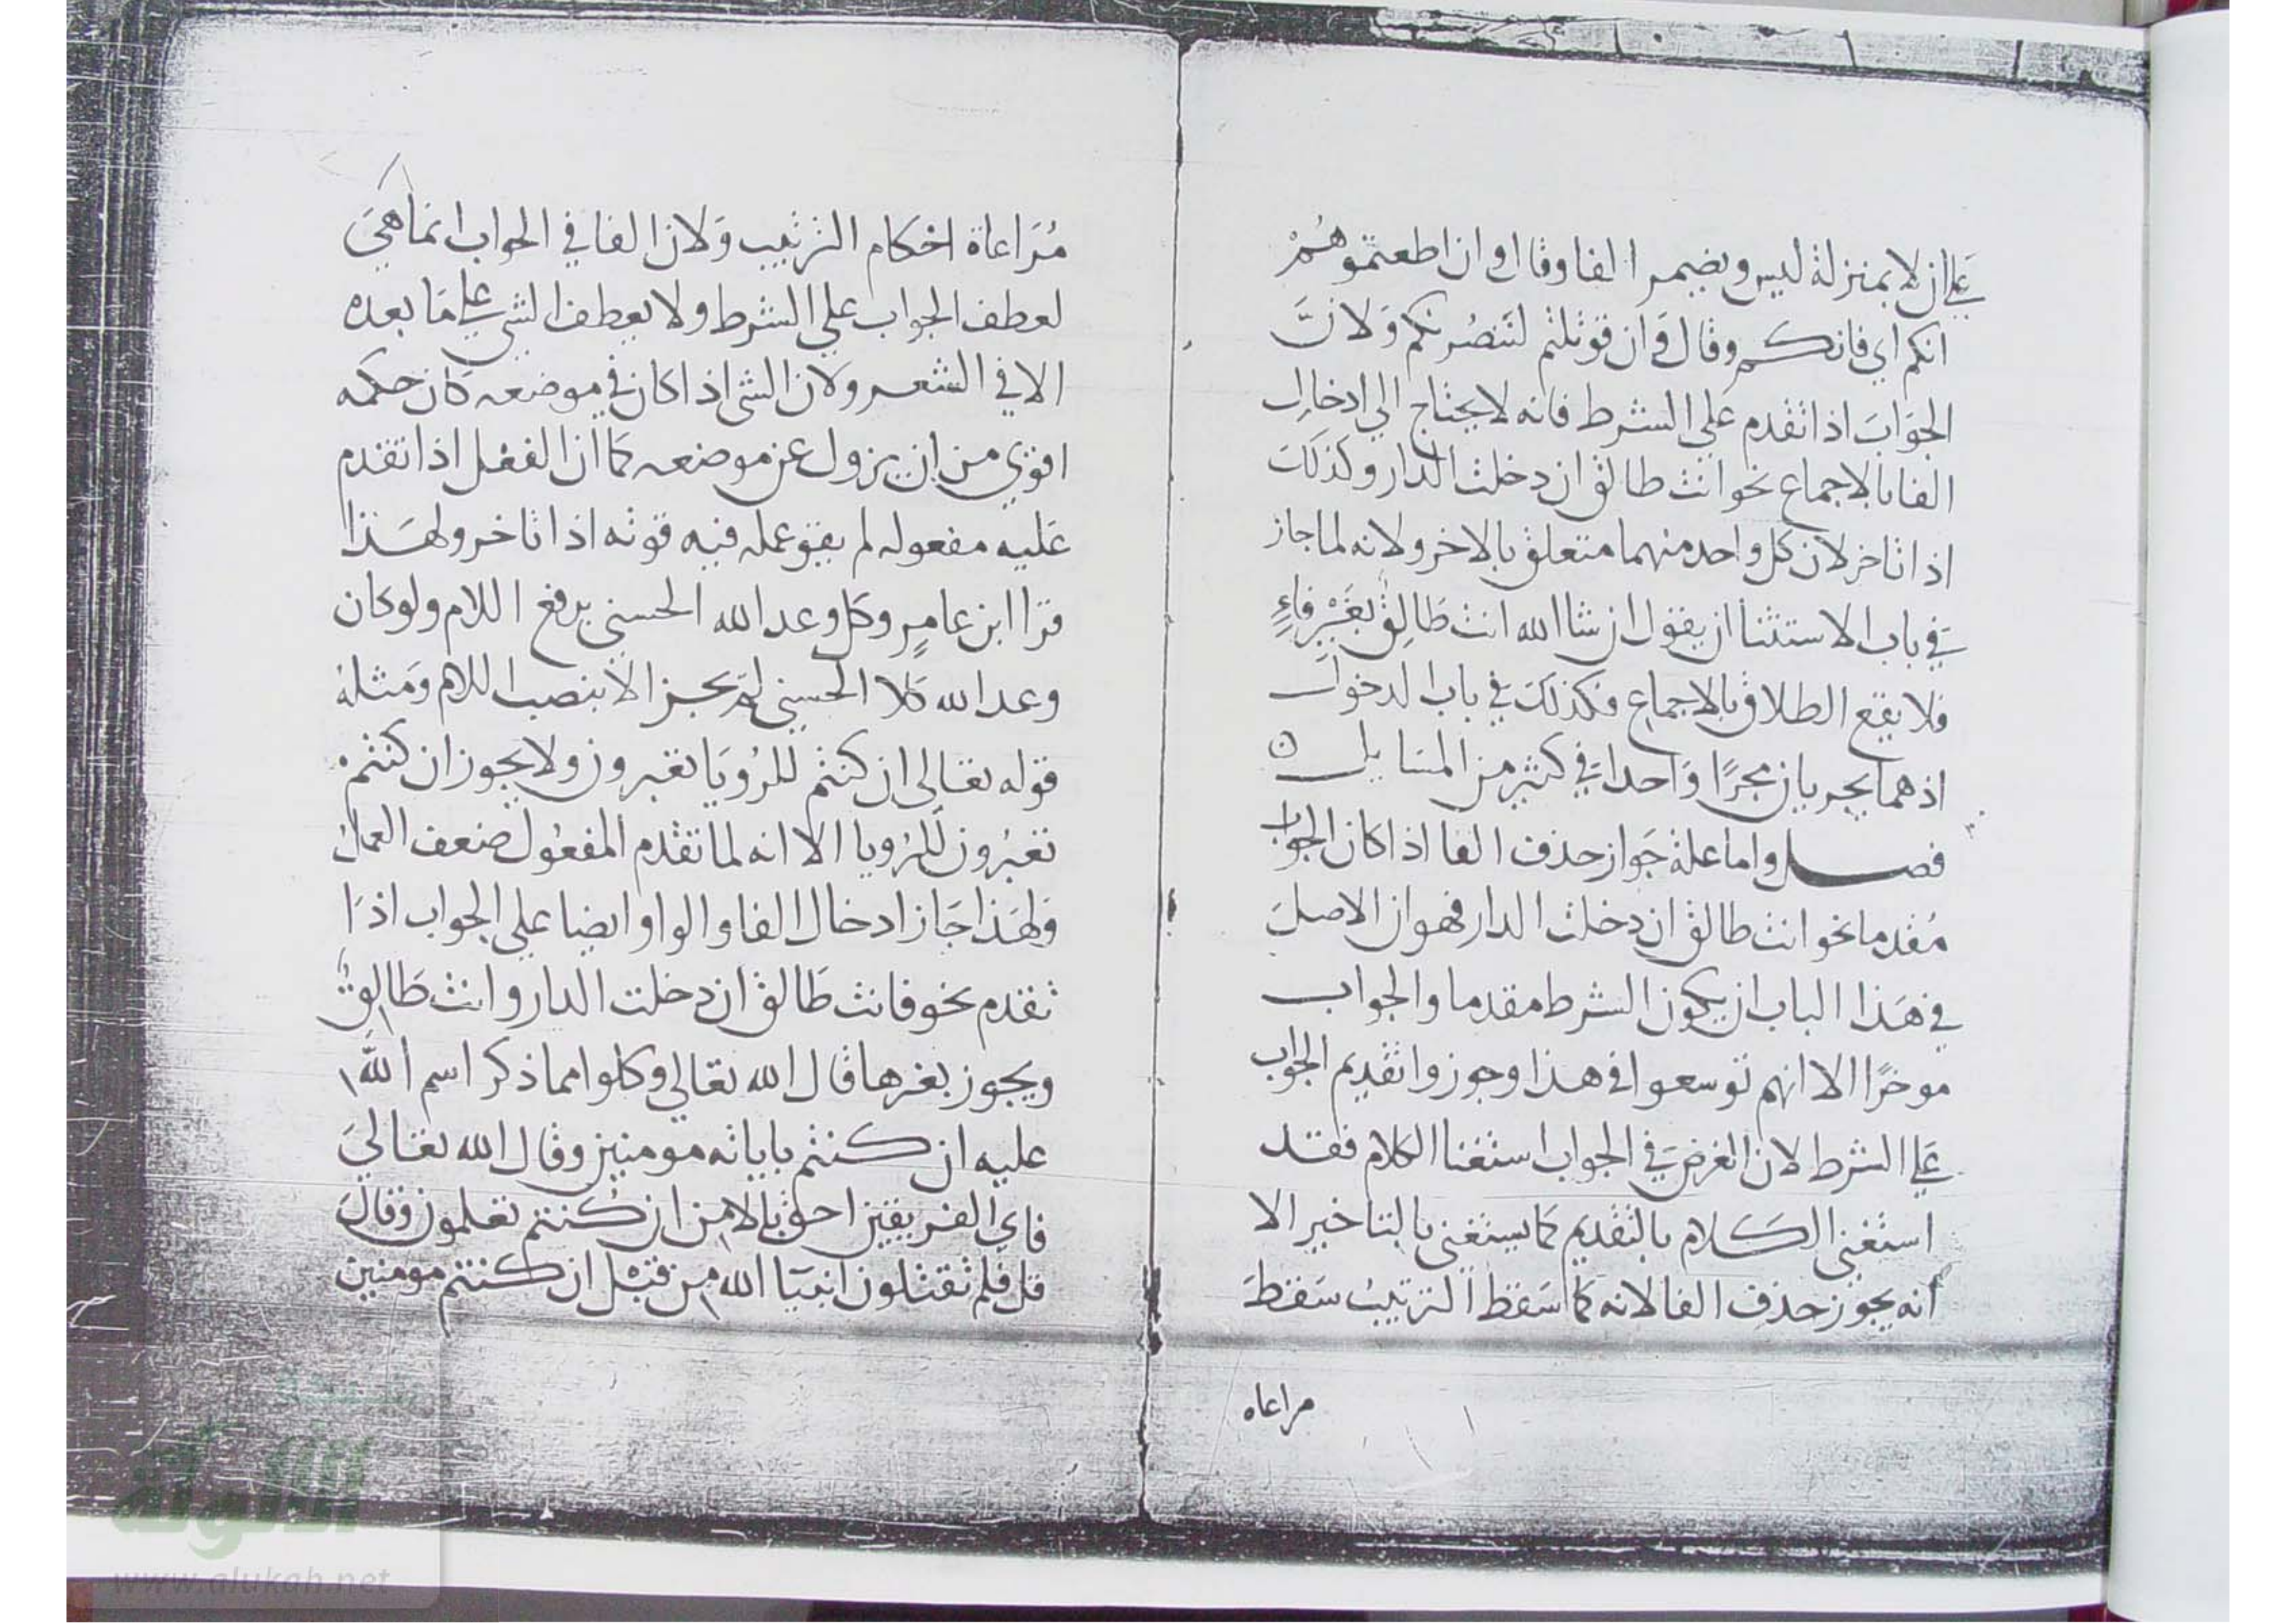 علي ان لا بمنزلة ليس ويضمر الفا وقال وان اطعتموهُمْ
انكم اي فانكم وقال وَان قوتلتم لنَنصُرنكم وَلانَّ
الجوَابَ اذا تقدم علي الشرط فانه لا يحتاج الي ادخالِ
الفا بالاجماع نحو انت طالق ان دخلت الدار وكذلكَ
اذا تاخر لان كل واحد منهما متعلق بالاخر ولانه لما جاز
في باب الاستثنا ان يقول ان شا الله انت طَالِقٌ بغَيْرِ فاءٍ
فلا يقع الطلاق بالاجماعِ فكذلكَ في باب الدخول
اذ هما يجريان مجرًا وَاحدا في كثير من المسَايل ه
فصل واما علة جَواز حذف الفا اذا كان الجواب
مُقدما نحو انت طالق ان دخلت الدار فهو ان الاصلَ
في هَذا الباب ان يكون الشرط مقدما والجواب
موخرًا الا انهم توسعوا في هذا وجوزوا تقديم الجواب
عَلي الشرط لان الغرضَ في الجواب استغنا الكلام فقد
استغني الكَلام بالتقديم كما يستغني بالتاخير الا
انه يجوز حذف الفا لانه كما سَقط الترتيبُ سَقطَ
مراعاه
مُرَاعاة احكام الترتيب وَلان الفا في الجواب انما هيَ
لعطف الجواب علي الشرط ولا يعطف الشي علي مَا بعده
الا في الشعر ولان الشي اذا كان في موضعه كَان حكمه
اقوي من ان يزول عن موضعه كما ان الفعل اذا تقدم
عَليه مفعوله لم يقو عمله فيه قوته اذا تاخر ولهَذا
قرا ابن عامرٍ وكلٌ وعد الله الحسني برفع اللام ولو كان
وعد الله كلا الحسني لم يجز الا بنصب اللام وَمثلهُ
قوله تعالي ان كنتم للرُويَا تعبرون ولا يجوز ان كنتم
تعبُرون للرُويا الا انه لما تقدم المفعُول ضعف العمل
وَلهَذا جَاز ادخال الفا والواو ايضا علي الجواب اذَا
تقدم نحو فانت طَالق ان دخلت الدار وانت طَالقٌ
ويجوز بغرها قال الله تعالي وكلوا مما ذكر اسم اللّه
عليه ان كنتم باياته مومنين وقال الله تعالي
فاي الفريقين احق بالامن ان كُنتم تعلمون وقالَ
قل فلم تقتلون انبيَا الله من قبْل ان كنتم مومنين
الألوكة
www.alukah.net